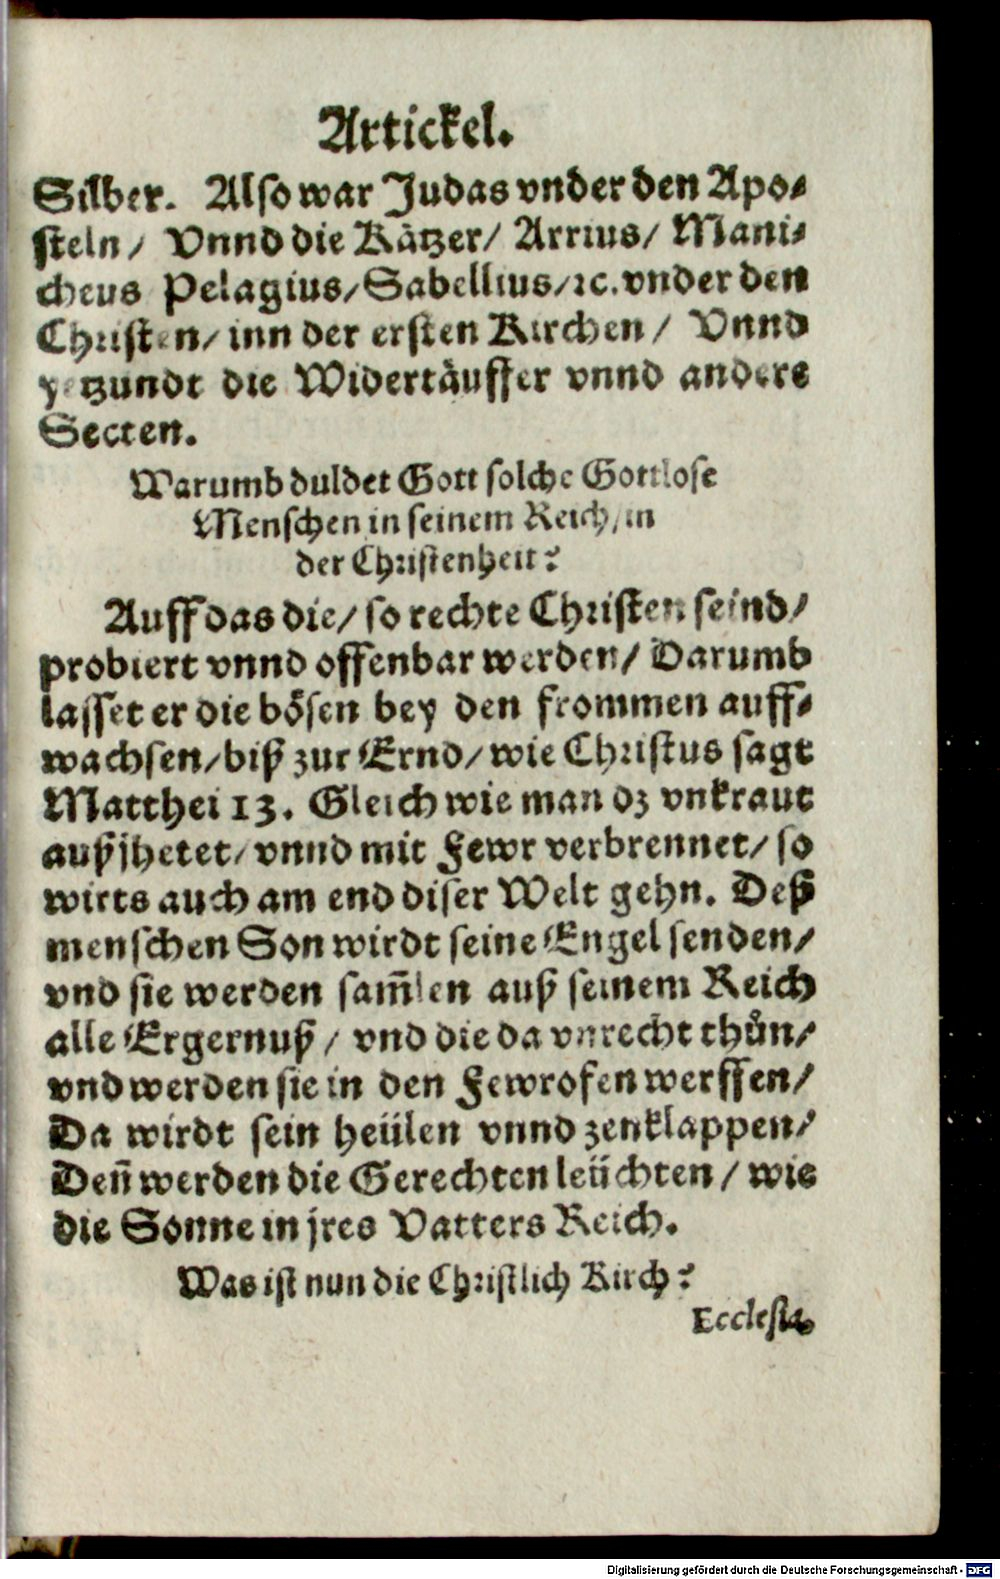 Artickel.
Silber. Also war Judas vnder den Apo⸗
steln/ Vnnd die Kätzer/ Arrius/ Mani⸗
cheus Pelagius/Sabellius/ꝛc. vnder den
Christen/ inn der ersten Kirchen/ Vnnd
yetzundt die Widertäuffer vnnd andere
Secten.
Warumb duldet Gott solche Gottlose
Menschen in seinem Reich/in
der Christenheit?
Auff das die/ so rechte Christen seind/
probiert vnnd offenbar werden/ Darumb
lasset er die bösen bey den frommen auff⸗
wachsen/biß zur Ernd/ wie Christus sagt
Matthei 13. Gleich wie man dz vnkraut
außjhetet/ vnnd mit Fewr verbrennet/ so
wirts auch am end diser Welt gehn. Deß
menschen Son wirdt seine Engel senden/
vnd sie werden sam̃len auß seinem Reich
alle Ergernuß/ vnd die da vnrecht thůn/
vnd werden sie in den Fewrofen werffen/
Da wirdt sein heülen vnnd zenklappen/
Deñ werden die Gerechten leüchten/ wie
die Sonne in jres Vatters Reich.
Was ist nun die Christlich Kirch?
Ecclesia.
Digitalisierung gefördert durch die Deutsche Forschungsgemeinschaft - DFG